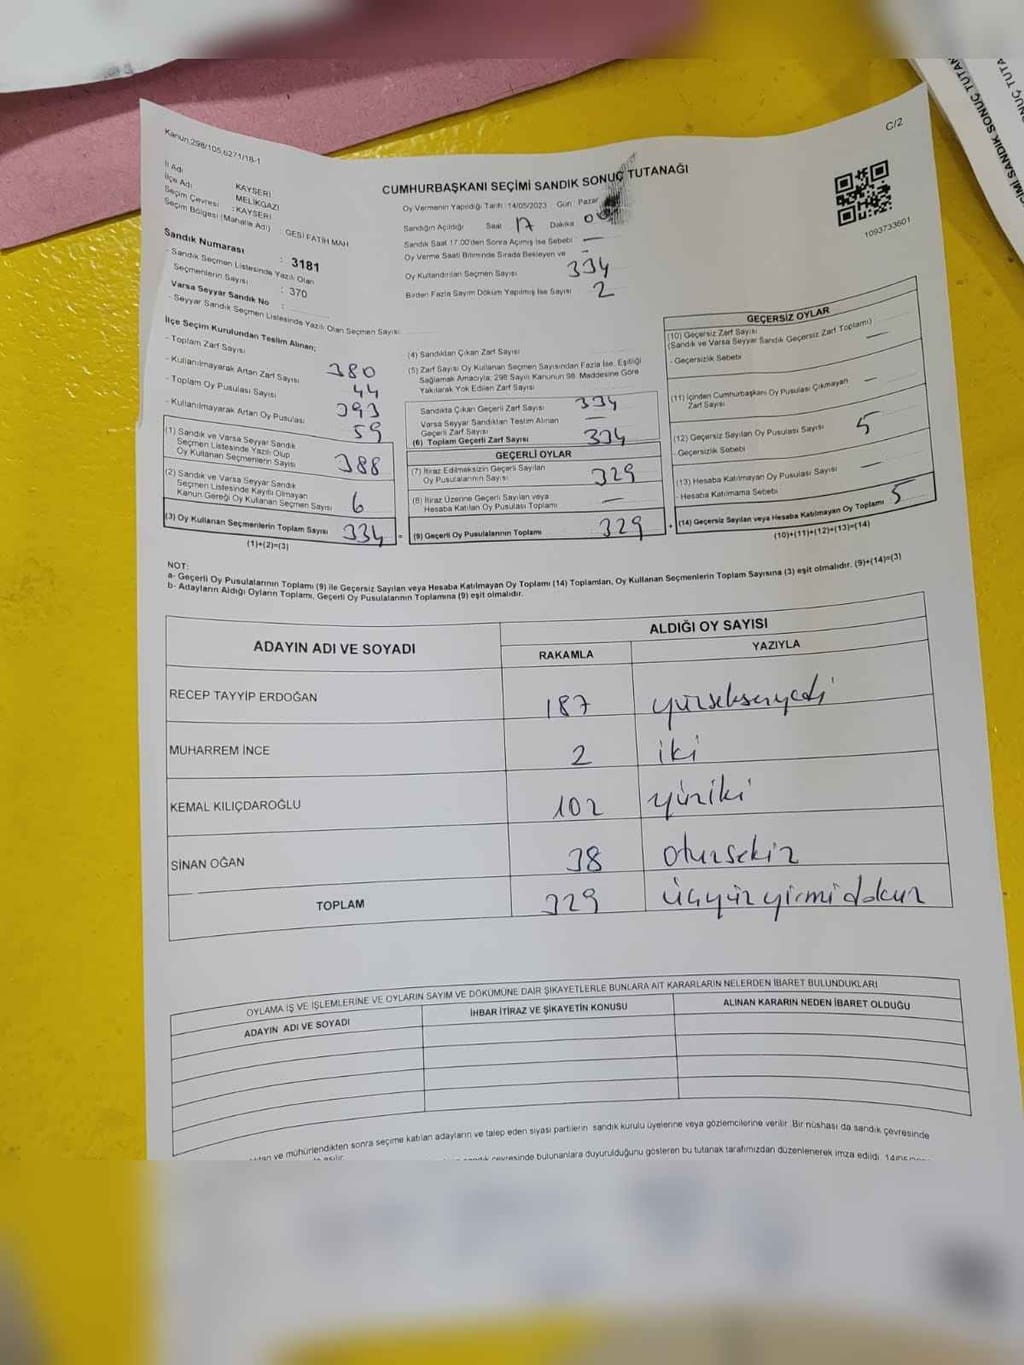 Kanun:298/105.6271/18-1
C/2
İl Adı : KAYSERİ
İlçe Adı : MELİKGAZİ
Seçim Çevresi : KAYSERİ
Seçim Bölgesi (Mahalle Adı) : GESİ FATİH MAH
Sandık Numarası : 3181
- Sandık Seçmen Listesinde Yazılı Olan
Seçmenlerin Sayısı : 370
Varsa Seyyar Sandık No :
- Seyyar Sandık Seçmen Listesinde Yazılı Olan Seçmen Sayısı:
CUMHURBAŞKANI SEÇİMİ SANDIK SONUÇ TUTANAĞI
Oy Vermenin Yapıldığı Tarih :14/05/2023 Gün : Pazar
Sandığın Açıldığı Saat 17 Dakika 00
Sandık Saat 17.00'den Sonra Açılmış İse Sebebi —
Oy Verme Saati Bitiminde Sırada Bekleyen ve
Oy Kullandırılan Seçmen Sayısı 334
Birden Fazla Sayım Döküm Yapılmış İse Sayısı 2
1093733601
İlçe Seçim Kurulundan Teslim Alınan;
- Toplam Zarf Sayısı 380
- Kullanılmayarak Artan Zarf Sayısı 44
- Toplam Oy Pusulası Sayısı 393
- Kullanılmayarak Artan Oy Pusulası 59
(1) Sandık ve Varsa Seyyar Sandık
Seçmen Listesinde Yazılı Olup
Oy Kullanan Seçmenlerin Sayısı 388
(2) Sandık ve Varsa Seyyar Sandık
Seçmen Listesinde Kayıtlı Olmayan
Kanun Gereği Oy Kullanan Seçmen Sayısı 6
(3) Oy Kullanan Seçmenlerin Toplam Sayısı 334
(1)+(2)=(3)
(4) Sandıktan Çıkan Zarf Sayısı
(5) Zarf Sayısı Oy Kullanan Seçmen Sayısından Fazla İse, Eşitliği
Sağlamak Amacıyla; 298 Sayılı Kanunun 98. Maddesine Göre
Yakılarak Yok Edilen Zarf Sayısı
Sandıkta Çıkan Geçerli Zarf Sayısı 334
Varsa Seyyar Sandıktan Teslim Alınan
Geçerli Zarf Sayısı —
(6) Toplam Geçerli Zarf Sayısı 334
GEÇERLİ OYLAR
(7) İtiraz Edilmeksizin Geçerli Sayılan
Oy Pusulalarının Sayısı 329
(8) İtiraz Üzerine Geçerli Sayılan veya
Hesaba Katılan Oy Pusulası Toplamı —
= (9) Geçerli Oy Pusulalarının Toplamı 329
GEÇERSİZ OYLAR
(10) Geçersiz Zarf Sayısı
(Sandık ve Varsa Seyyar Sandık Geçersiz Zarf Toplamı) —
- Geçersizlik Sebebi
(11) İçinden Cumhurbaşkanı Oy Pusulası Çıkmayan
Zarf Sayısı —
(12) Geçersiz Sayılan Oy Pusulası Sayısı 5
- Geçersizlik Sebebi
(13) Hesaba Katılmayan Oy Pusulası Sayısı —
- Hesaba Katılmama Sebebi
+ (14) Geçersiz Sayılan veya Hesaba Katılmayan Oy Toplamı 5
(10)+(11)+(12)+(13)=(14)
NOT:
a- Geçerli Oy Pusulalarının Toplamı (9) ile Geçersiz Sayılan veya Hesaba Katılmayan Oy Toplamı (14) Toplamları, Oy Kullanan Seçmenlerin Toplam Sayısına (3) eşit olmalıdır. (9)+(14)=(3)
b- Adayların Aldığı Oyların Toplamı, Geçerli Oy Pusulalarının Toplamına (9) eşit olmalıdır.
ADAYIN ADI VE SOYADI
ALDIĞI OY SAYISI
RAKAMLA YAZIYLA
RECEP TAYYİP ERDOĞAN 187 yüzseksenyedi
MUHARREM İNCE 2 iki
KEMAL KILIÇDAROĞLU 102 yüziki
SİNAN OĞAN 38 otuzsekiz
TOPLAM 329 üçyüzyirmidokuz
OYLAMA İŞ VE İŞLEMLERİNE VE OYLARIN SAYIM VE DÖKÜMÜNE DAİR ŞİKAYETLERLE BUNLARA AİT KARARLARIN NELERDEN İBARET BULUNDUKLARI
ADAYIN ADI VE SOYADI İHBAR İTİRAZ VE ŞİKAYETİN KONUSU ALINAN KARARIN NEDEN İBARET OLDUĞU
ve mühürlendikten sonra seçime katılan adayların ve talep eden siyasi partilerin sandık kurulu üyelerine veya gözlemcilerine verilir. Bir nüshası da sandık çevresinde
çevresinde bulunanlara duyurulduğunu gösteren bu tutanak tarafımızdan düzenlenerek imza edildi.